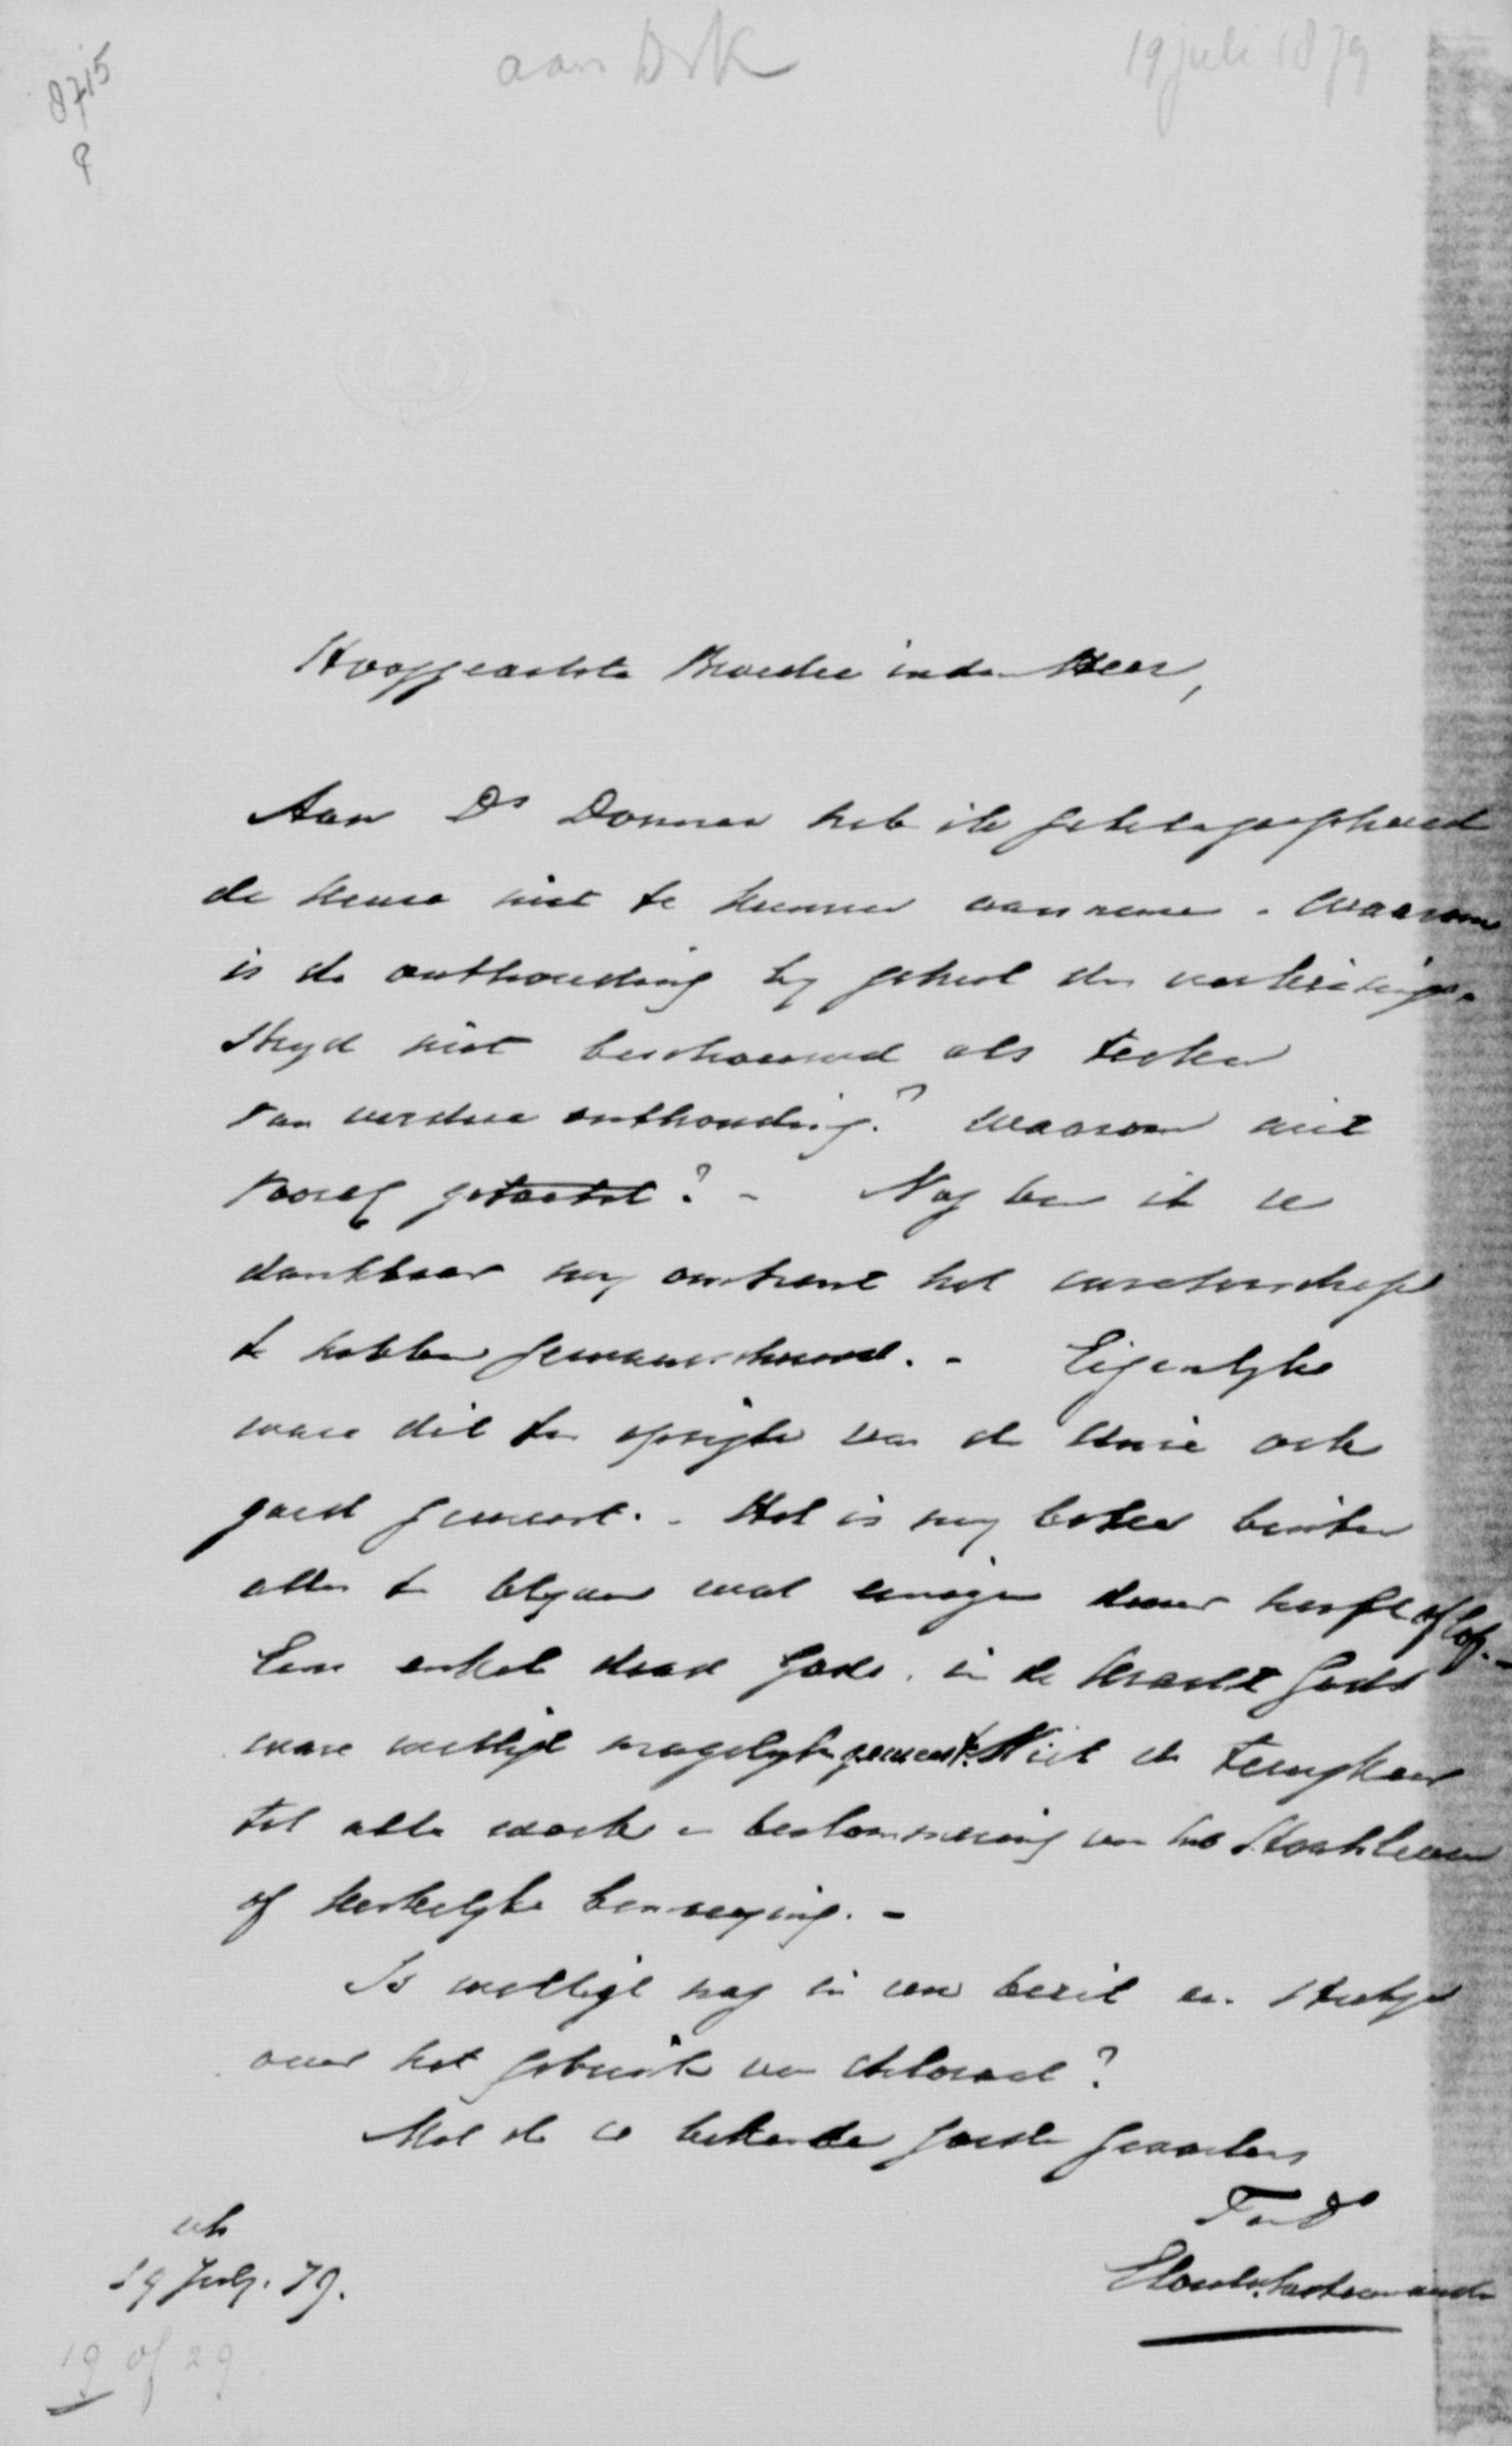 8715
?
aan Dr K
19 juli 1879
Hooggeachte Broeder in den Heer,
Aan Ds Donner heb ik getelegrapheerd
de keuze niet te kunnen aannemen. Waarom
is de onthouding bij geheel den verkiezings
strijd niet beschouwd als teeken
van verdere onthouding? Waarom niet
vooraf getoetst? - Nog ben ik u
dankbaar mij omtrent het curatorschap
te hebben gewaarschuwd. - Eigenlijk
ware dit ten opzigte van de Unie ook
goed geweest. - Het is mij beter buiten
alles te blijven wat eenigen duur heeft of
Een enkele daad Gods, in de kracht Gods
ware wellicht mogelijk geweest. Niet de terugkeer
tot alle werk en beslommering van het Staatsleven
of kerkelijke beweging. -
Is wellicht nog in uw bezit een stukje
over het gebruik van chloral?
Met de u bekende goede gevoelens
19 July. 79.
19 of 29